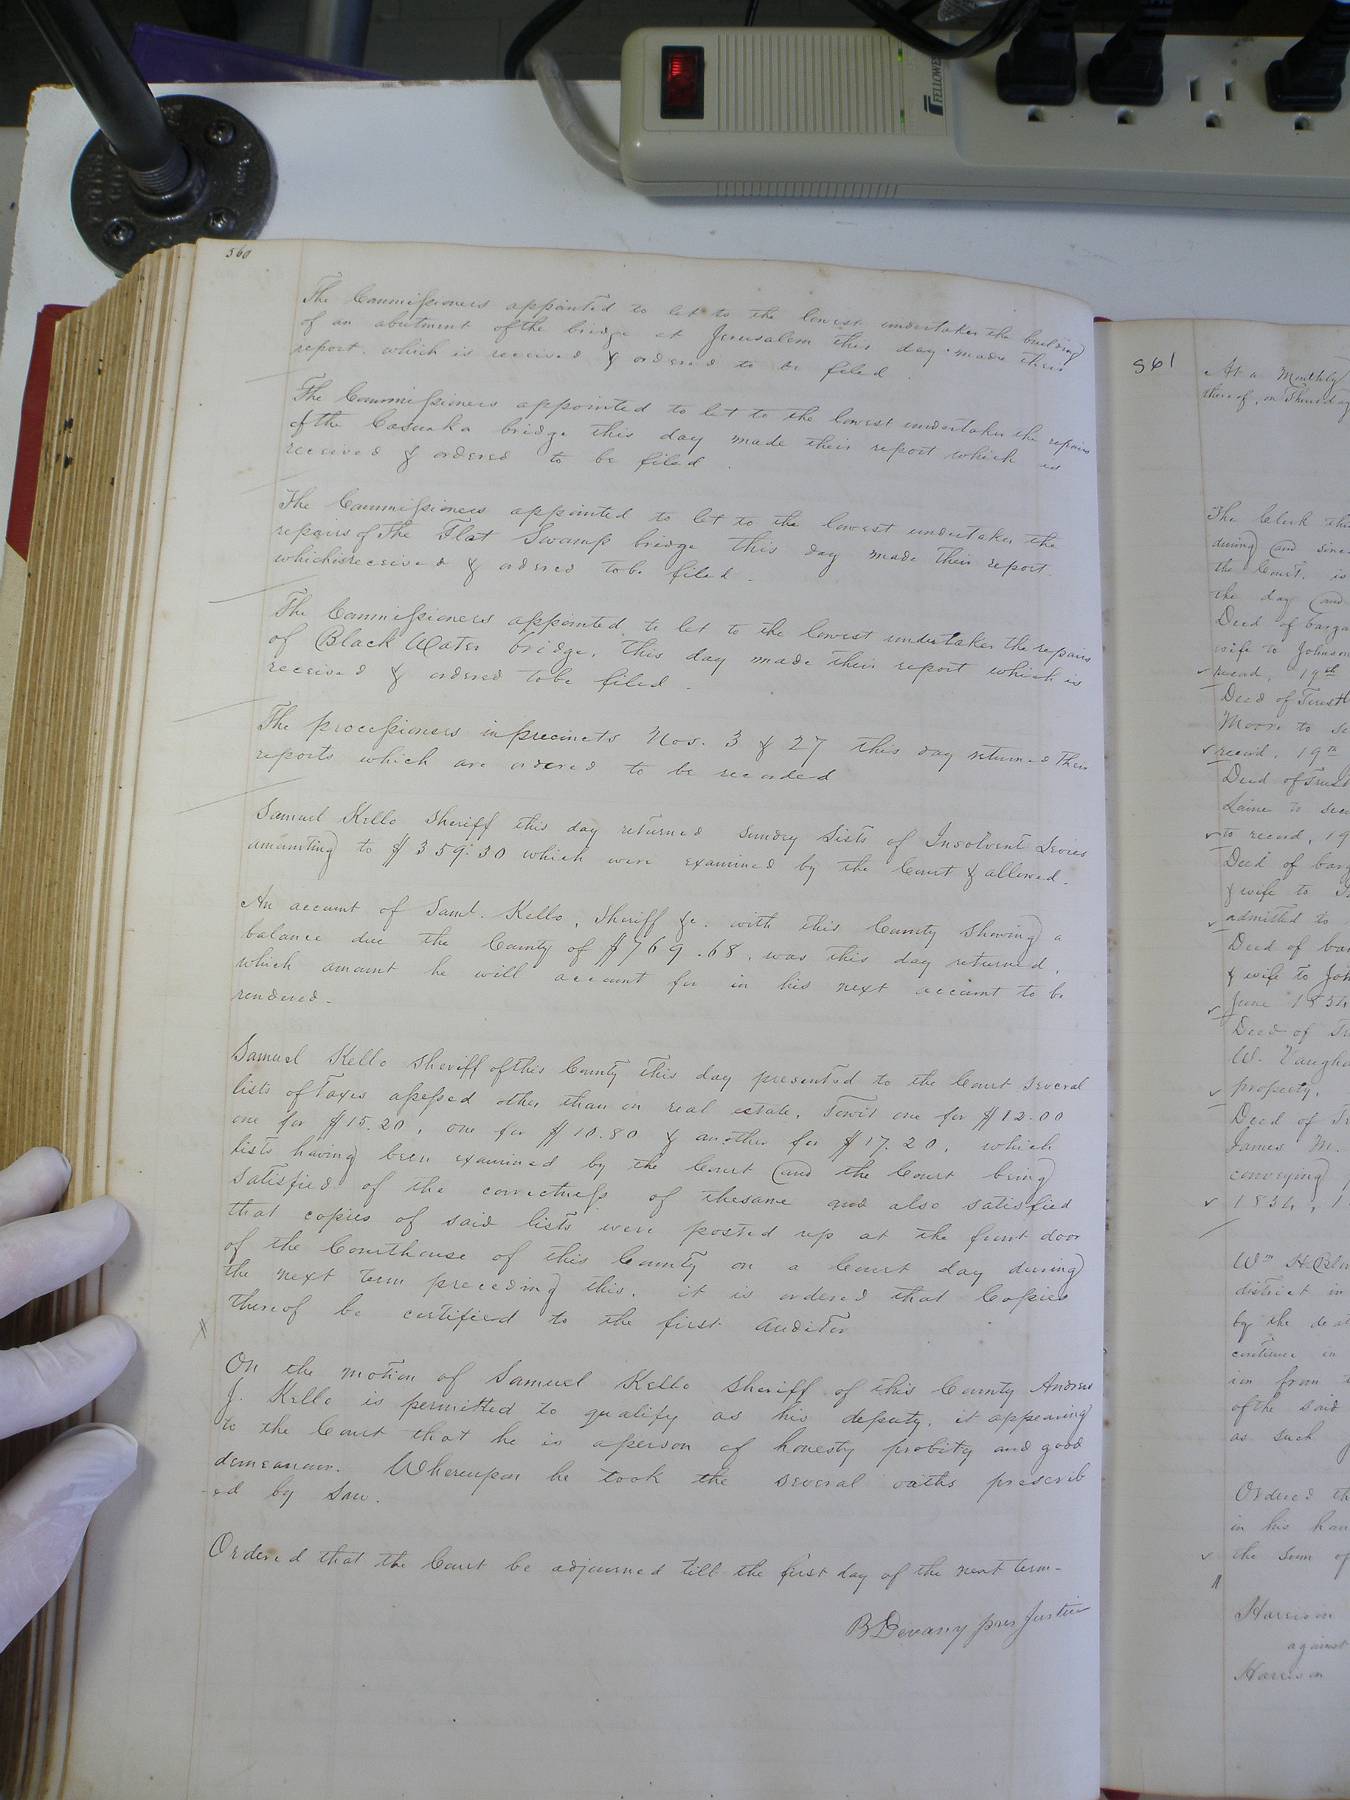 560
The Commissioners appointed to let to the lowest undertaker the building
of an abutment of the bridge at Jerusalem this day made their
report which is received & ordered to be filed.
The Commissioners appointed to let to the lowest undertaker the repairs
of the bridge this day made their report which is
received & ordered to be filed.
The Commissioners appointed to let to the lowest undertaker the
repairs of the Flat Swamp bridge this day made their report
which is received & ordered to be filed.
The Commissioners appointed to let to the lowest undertaker the repairs
of Black Water bridge, this day made their report which is
received & ordered to be filed.
The processioners in precincts Nos. 3 & 27 this day returned their
reports which are ordered to be recorded
Samuel Kello Sheriff this day returned sundry Lists of Insolvent
amounting to $359.30 which were examined by the Court & allowed.
An account of Saml. Kello, Sheriff &c. with this County showing a
balance due the County of $769.68, was this day returned,
which amount he will account for in his next account to be
rendered.
Samuel Kello Sheriff of this County this day presented to the Court several
lists of Taxes assessed other than on real estate, Towit one for $12.00
one for $15.20, one for $10.80 & another for $17.20, which
lists having been examined by the Court and the Court being
satisfied of the correctness of the same and also satisfied
that copies of said lists were posted up at the front door
of the Courthouse of this County on a Court day during
the next Term preceding this, it is ordered that Copies
thereof be certified to the first Auditor
On the motion of Samuel Kello Sheriff of this County Andrew
J. Kello is permitted to qualify as his deputy, it appearing
to the Court that he is a person of honesty probity and good
demeanour. Whereupon he took the several oaths prescrib
-ed by Law.
Ordered that the Court be adjourned till the first day of the next term-
B Devany pres Justice
561
At a Monthly
thereof, on Thursday
The Clerk
during and since
the Court, is
the day and
Deed of barga
wife to Johnson
record, 19th
Deed of Trust
Moore to se
record, 19th
Deed of Trust
Laine to sec
to record, 19
Deed of barg
& wife to
admitted to
Deed of bar
& wife to Joh
June 1834
Deed of Tr
W. Vaugha
property,
Deed of Tr
James M.
conveying
1834, 1
Wm H.
district in
by the
continue in
ion from
of the said
as such
Ordered th
in his han
the sum of
Harrison
against
Harrison
FELLOWES